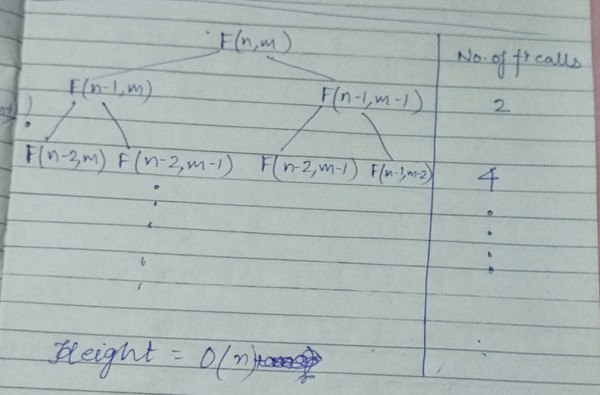 F(n,m)
No. of fn calls
F(n-1,m) F(n-1,m-1) 2
F(n-2,m) F(n-2,m-1) F(n-2,m-1) F(n-1,m-2) 4
Height = O(n)